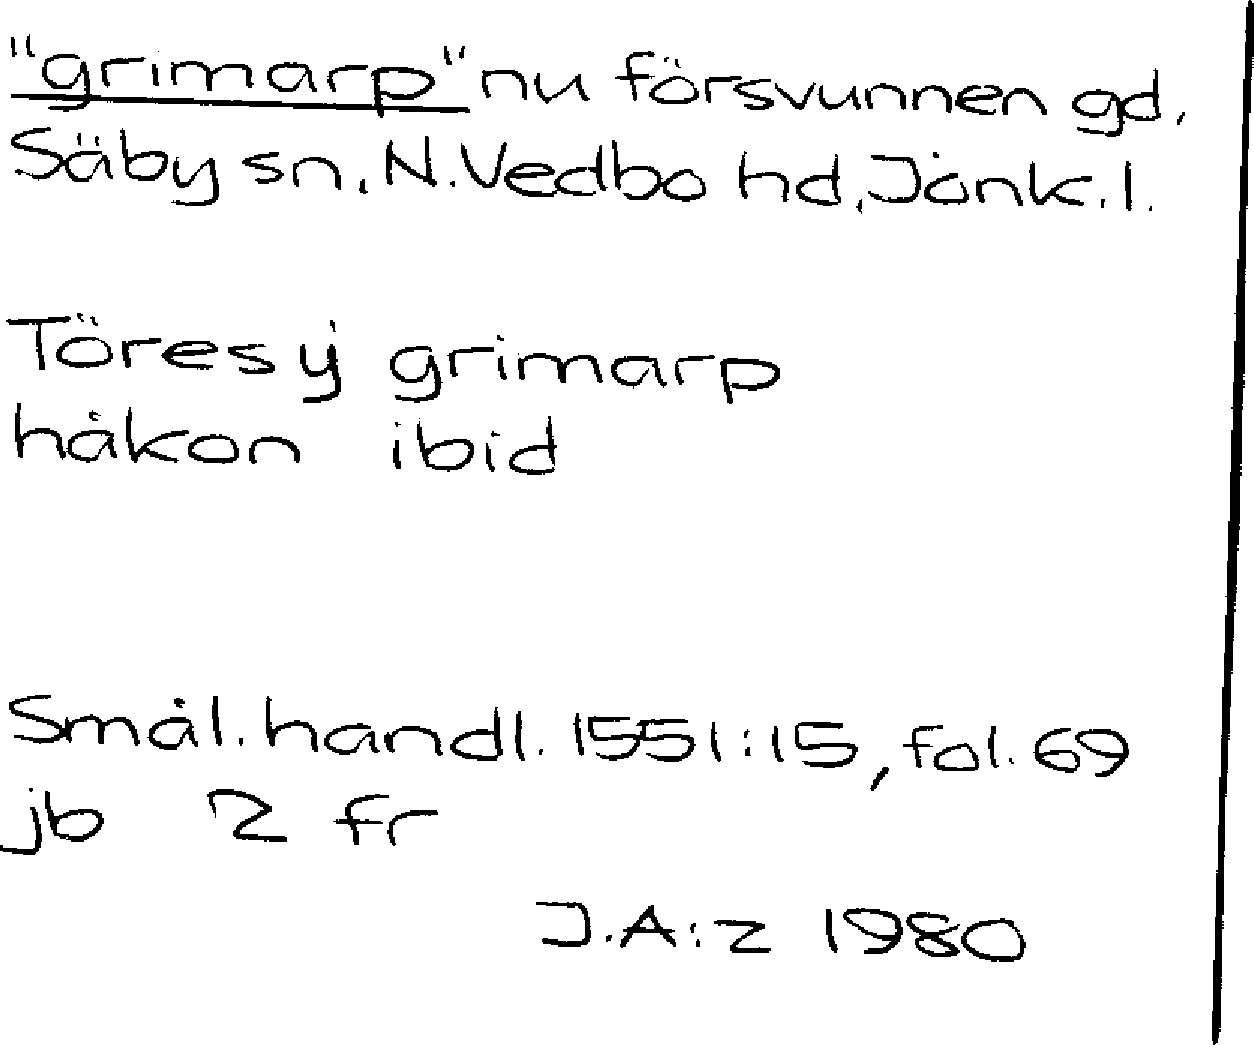 "grimarp" nu försvunnen gd,
Säby sn, N.Vedbo hd, Jönk.l.
Töres ÿ grimarp
håkon ibid
Smål. handl. 1551:15, fol. 69
jb 2 fr
J.A:z 1980